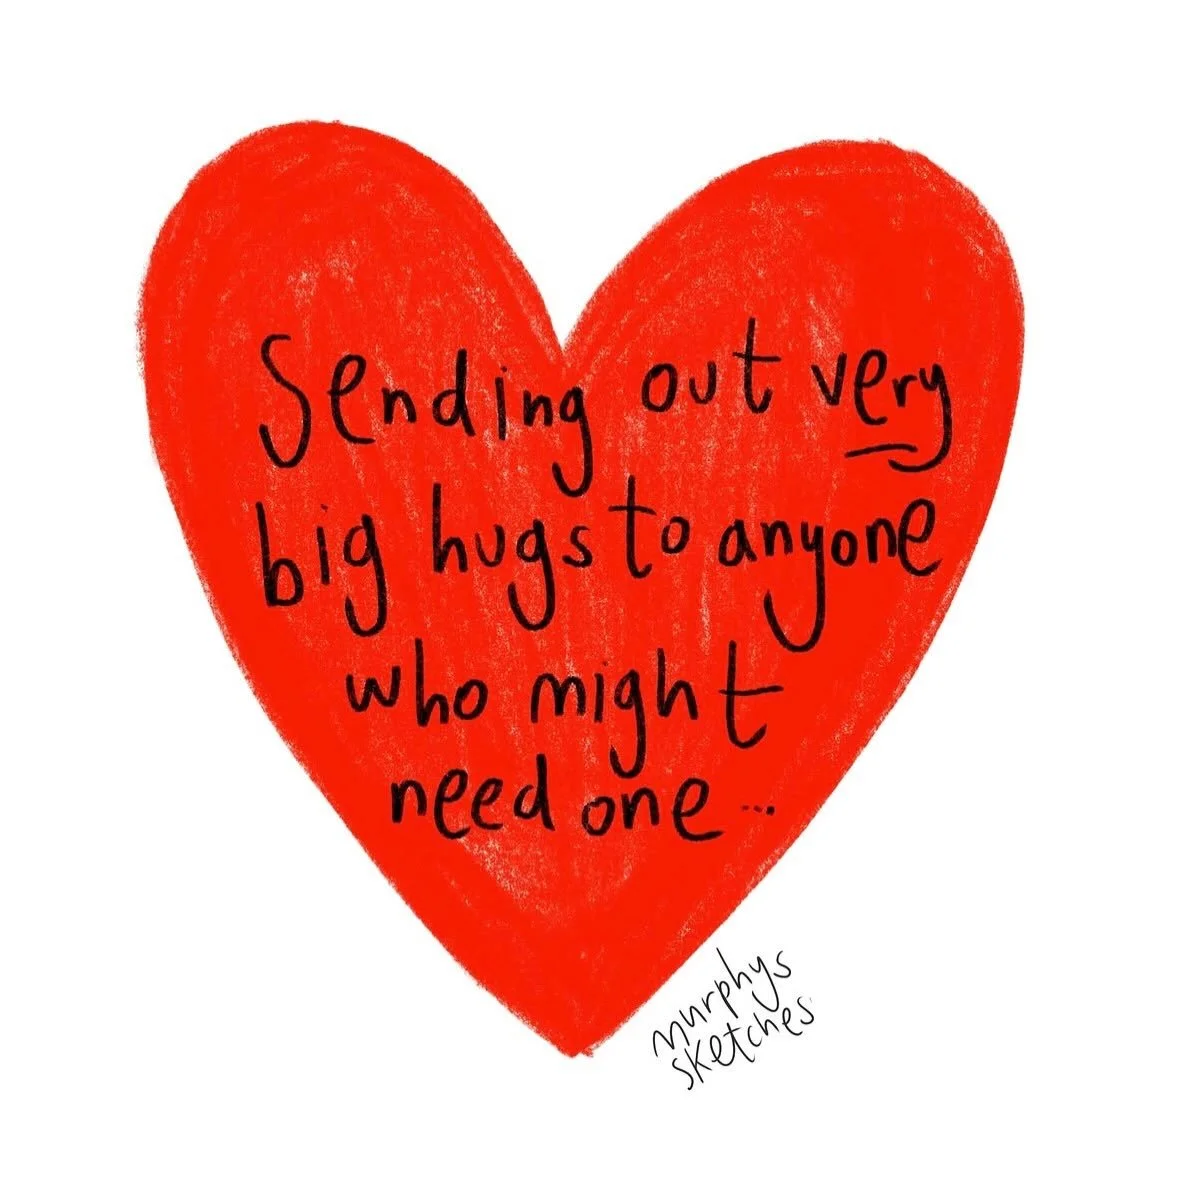 Sending out very
big hugs to anyone
who might
need one...
murphys
sketches